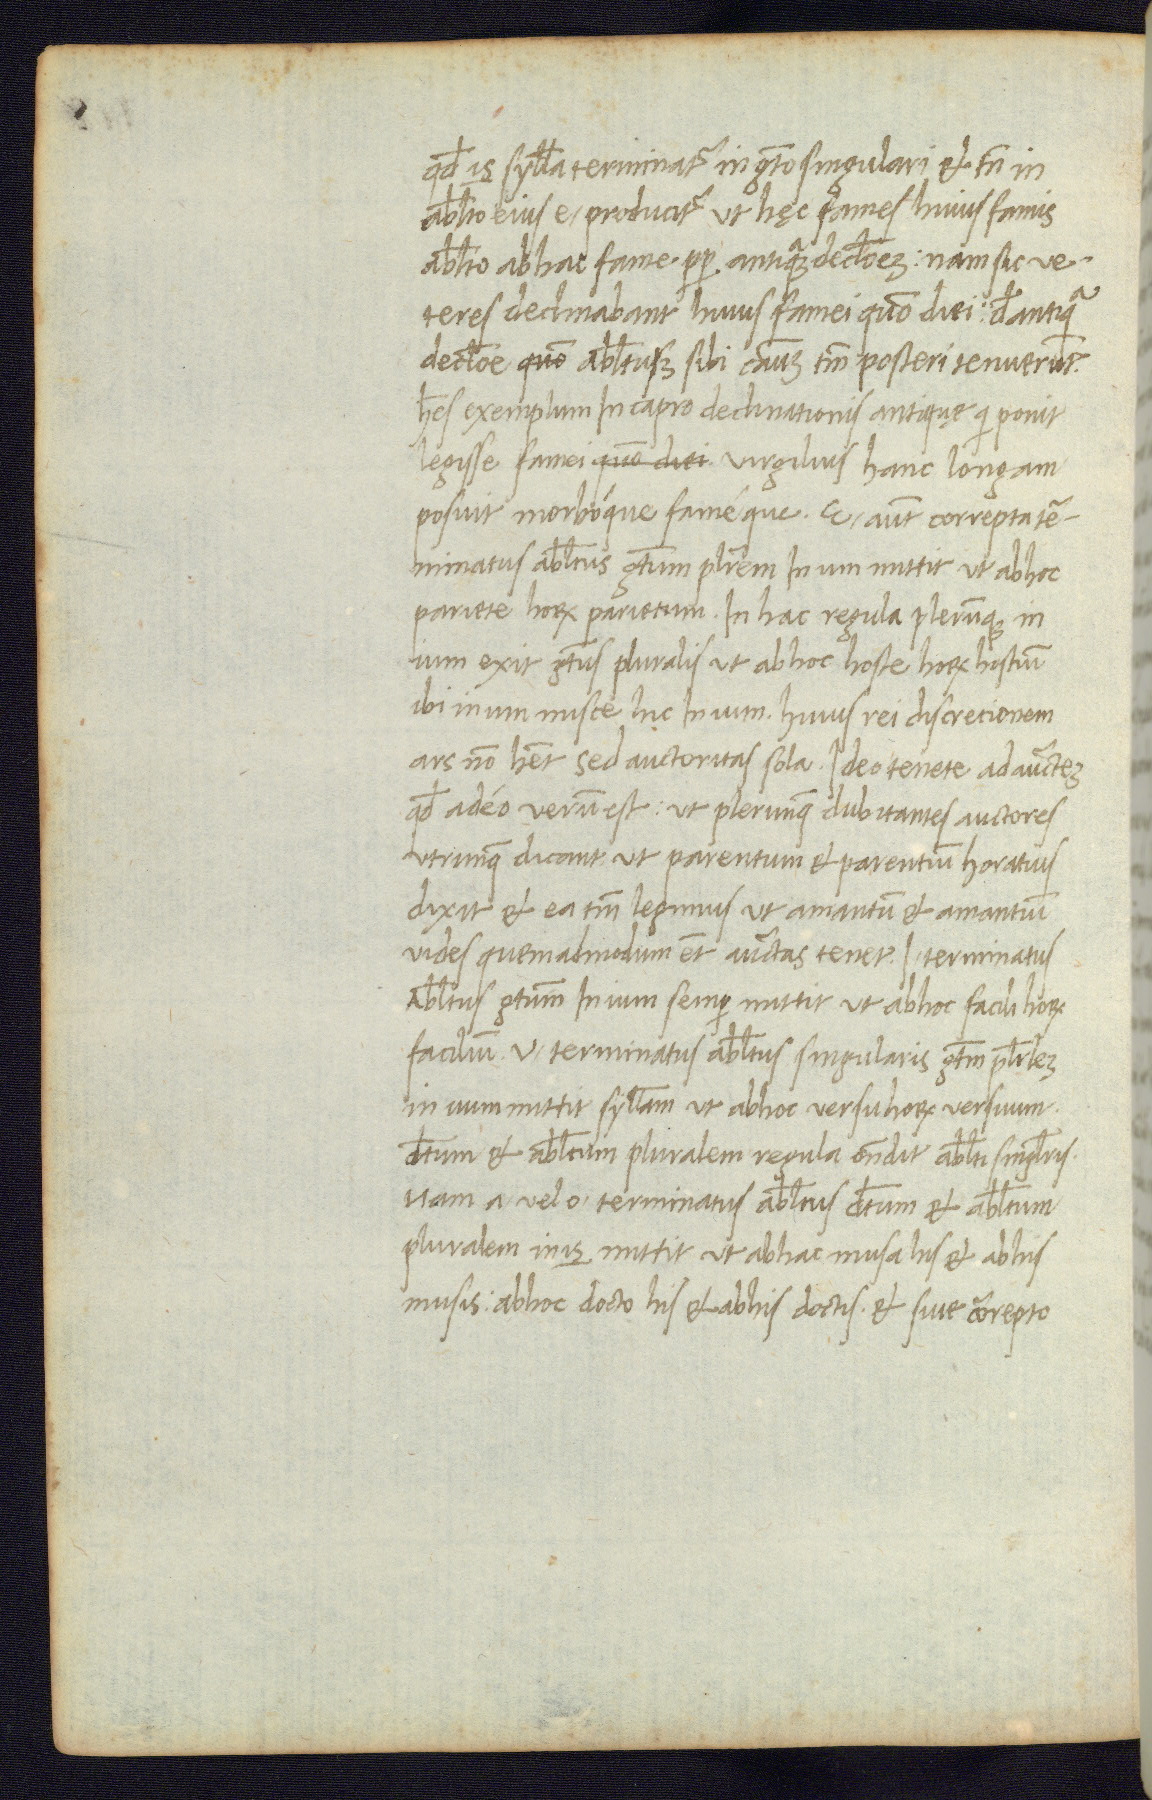 qđ is syłła terminat᷑ in gt̄o singulari & tn̄ in
abłto eius e, producit᷑ ut hęc fames huius famis
abłto ab hac fame pp antiquā decłoeꝫ : nam sic ve-
teres declinabant huius famei quō diei : đ antiqua
decłoe quō abłtus sibi tn̄ posteri tenuerūt.
hēs exemplum In capro declinationis antiquę q ponit
legisse famei quō diei. Virgilius hanc longam
posuit morbóque faméque. E, aūt correpta tē-
minatus abłtus gt̄um plr̄em In um mittit ut ab hoc
pariete horꝝ parietum. In hac regula plerūqꝫ in
ium exit gt̄us pluralis ut ab hoc hoste horꝝ hostiū
ibi in um misce hic In ium. huius rei discretionem
ars nō hēt sed auctoritas sola. Ideo tenete ad auctēꝫ
qđ adéo verū est : ut plerunqꝫ dubitantes auctores
utrunqꝫ dicant ut parentum & parentiū horatius
dixit & ea tn̄ legimus ut amantū & amantiū
vides quemadmodum ēt auctas tenet. I, terminatus
Abłtus gt̄um In ium semp mittit ut ab hoc facili horꝝ
faciliū. V, terminatus abłtus singularis gt̄m płrleꝫ
in uum mittit syłłam ut ab hoc versu horꝝ versuum.
dt̄um & abłtum pluralem regula oñdit abłti singłris.
nam a, vel o, terminatus abłtus dt̄um & abłtum
pluralem in is mittit ut ab hac musa his & ab his
musis : ab hoc docto his & ab his doctis. & siue correpto